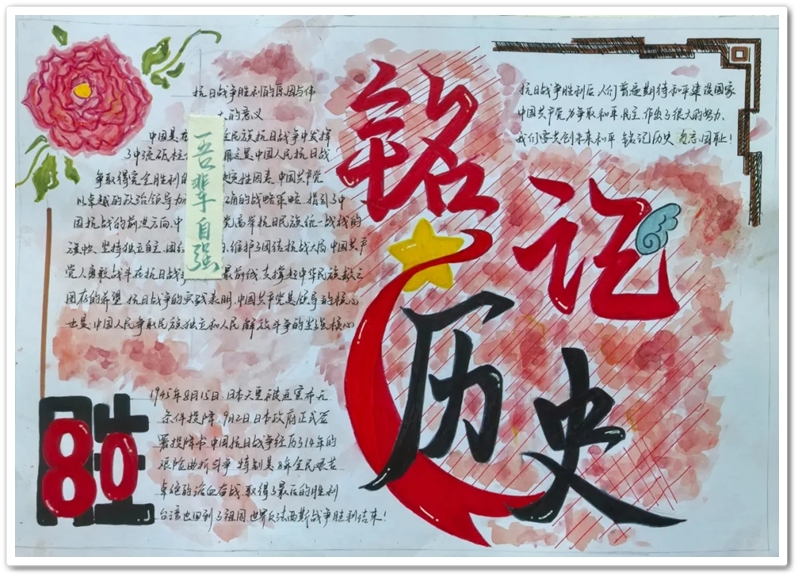 抗日战争胜利的原因与伟
大的意义
中国是在 民族抗日战争中发挥
了中流砥柱 是中国人民抗日战
争取得完全胜利的 决定性因素.中国共产党
以卓越的政治领导力 正确的战略策略.指引了中
国抗战的前进方向.中 党高举抗日民族统一战线的
旗帜.坚持独立自主.团结 维护了团结抗战大局.中国共产
党人勇敢战斗在抗日战争 最前线.支撑起中华民族救亡
图存的希望.抗日战争的实践表明.中国共产党是 的核心
也是.中国人民争取民族独立和人民解放斗争的坚强核心
吾辈自强
铭记
历史
抗日战争胜利后,人们普遍期待和平建设国家
中国共产党为争取和平,民主,作出了很大的努力.
我们要共创未来和平 铭记历史 勿忘国耻!
80胜
1945年8月15日.日本天皇被迫宣布无
条件投降 9月2日日本政府正式签
署投降书.中国抗日战争经历了14年的
艰险曲折斗争.特别是8年全民艰苦
卓绝的浴血奋战.取得了最后的胜利
台湾也回到了祖国.世界反法西斯战争胜利结束!